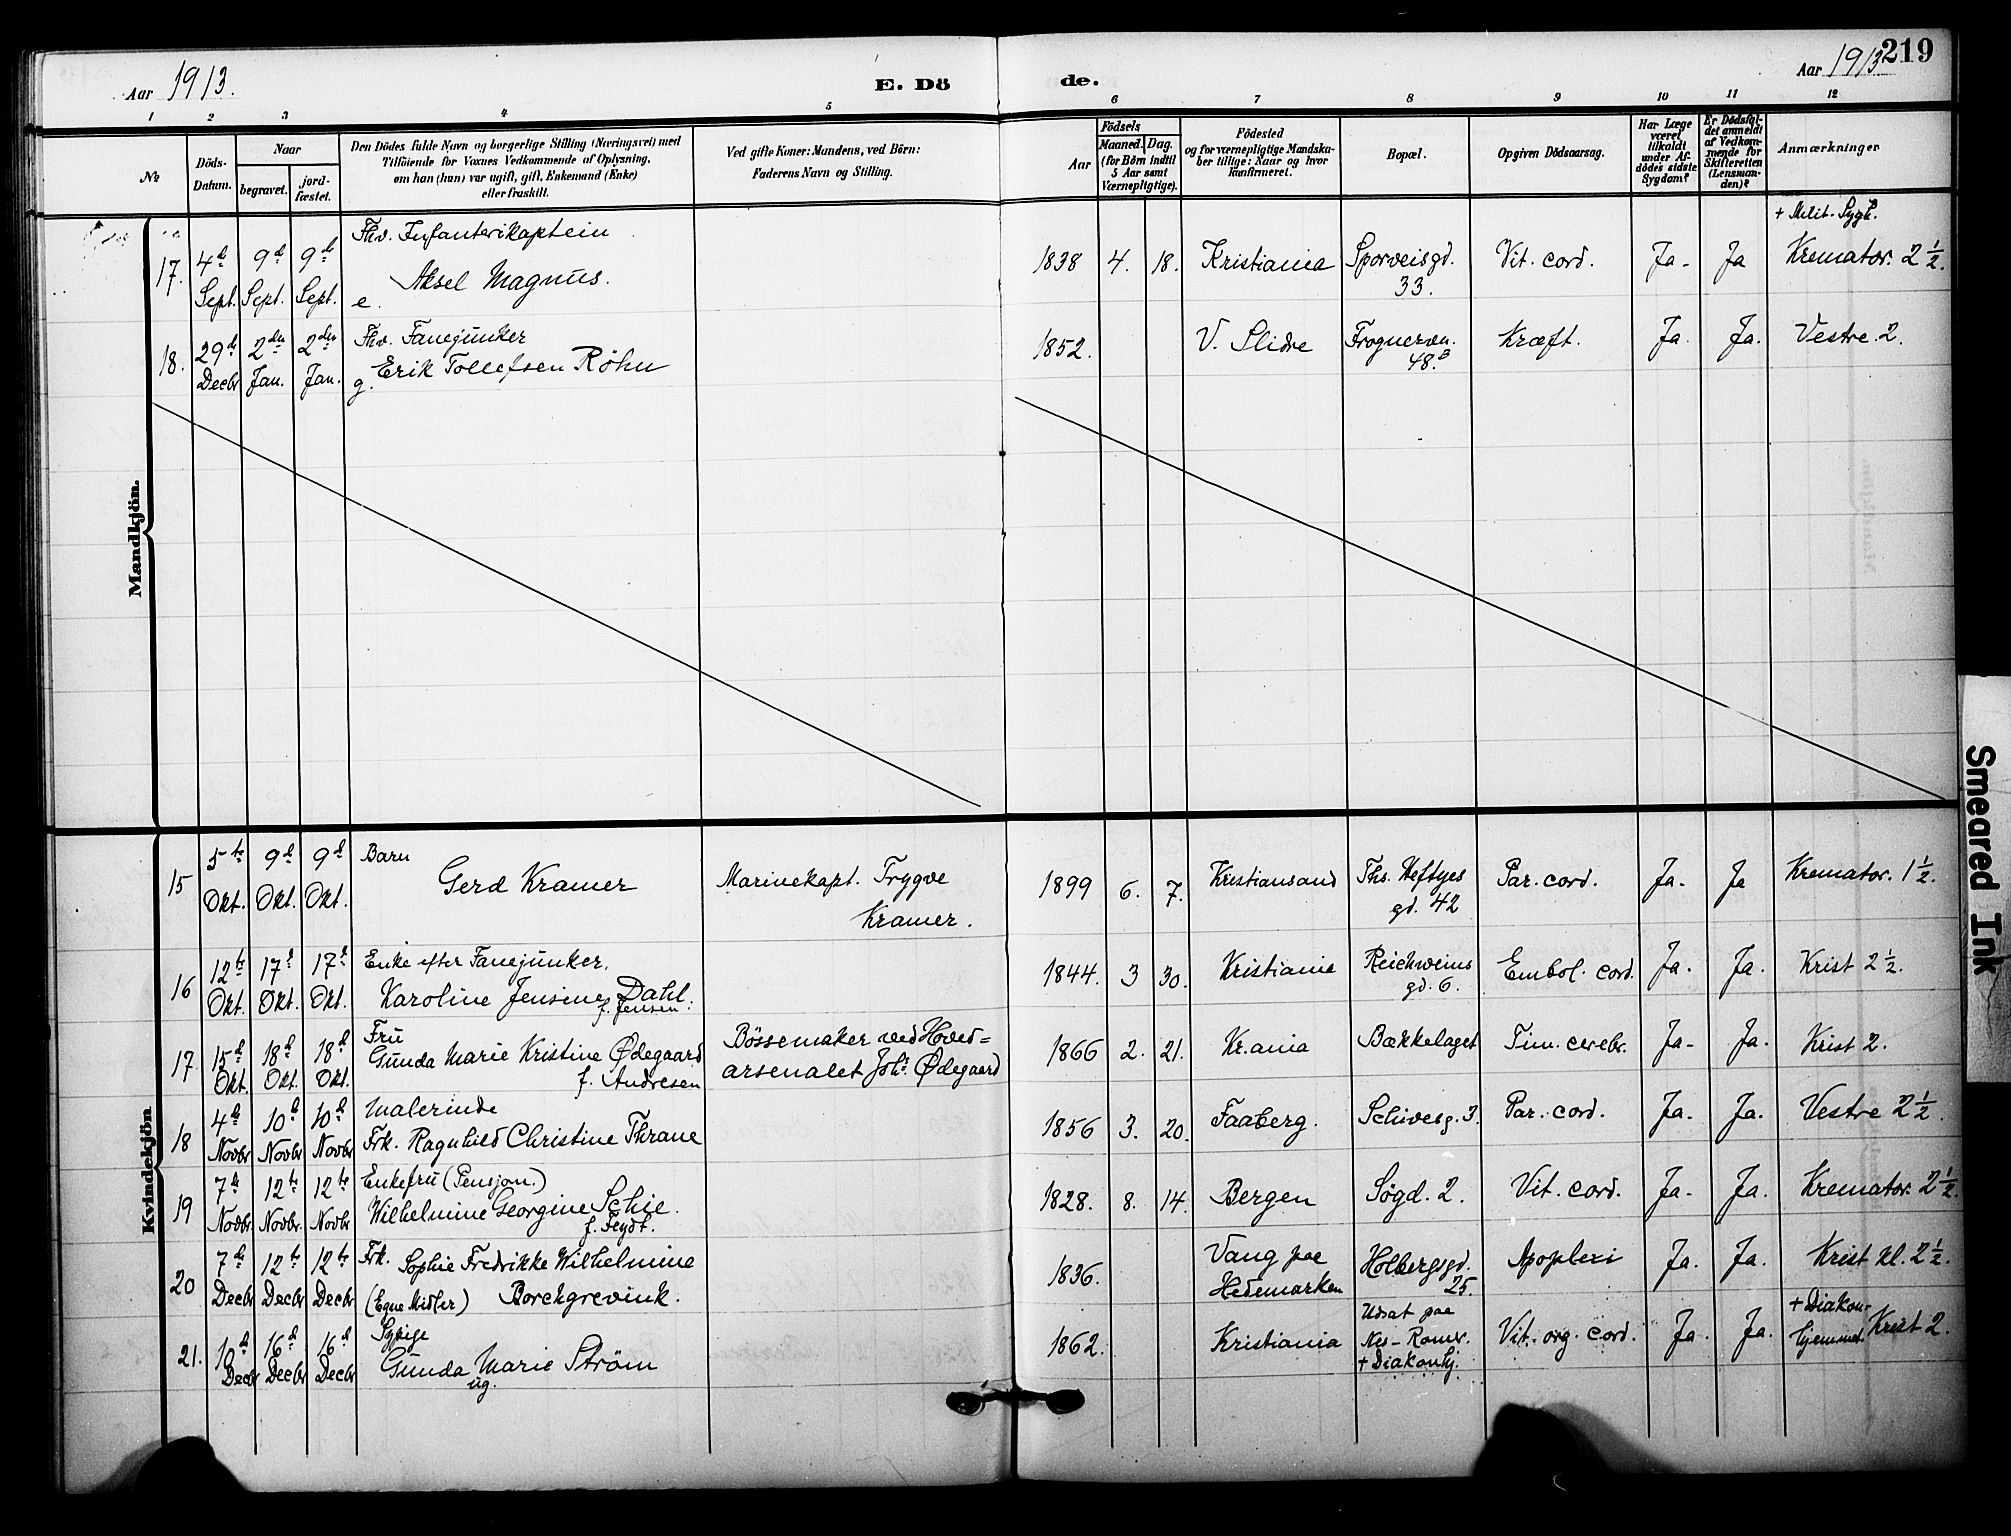 Aar 1913.
E. Dö
de.
Aar 1913
219
1 2 3 4 5 6 7 8 9 10 11 12
No
Döds-
Datum.
Naar
begravet.
jord-
fæstet.
Den Dödes fulde Navn og borgerlige Stilling (Næringsvei) med
Tilföiende for Voxnes Vedkommende af Oplysning,
om han (hun) var ugift, gift, Enkemand (Enke)
eller fraskilt.
Ved gifte Koner: Mandens, ved Börn:
Faderens Navn og Stilling.
Födsels
Aar
Maaned.
Dag.
(for Börn indtil
5 Aar samt
Værnepligtige).
Födested
og for værnepligtige Mandska-
ber tillige: Naar og hvor
konfirmeret.
Bopæl.
Opgiven Dödsaarsag.
Har Læge
været
tilkaldt
under Af-
dödes sidste
Sygdom?
Er Dödsfal-
det anmeldt
af Vedkom-
mende for
Skifteretten
(Lensman-
den)?
Anmærkninger
Mandkjön.
17. 4d Sept. 9d Sept. 9d Sept.
Fhv. Infanterikaptein
Aksel Magnus.
e.
1838 4. 18. Kristiania Sporveisgd. 33. Vit. cord. Ja. Ja
+ Milit. Sygh.
Kremator. 2 1/2.
18. 29de Decbr 2den Jan. 2den Jan.
Fhv. Fanejunker
g. Erik Tollefsen Röhn
1852. V. Slidre Frognervn. 48.B Kræft. Ja. Ja. Vestre 2.
Kvindekjön.
15 5te Okt. 9d Okt. 9d Okt.
Barn
Gerd Kramer
Marinekapt. Trygve
Kramer.
1899 6. 7. Kristiansand Ths. Heftyes gd. 42 Par. cord. Ja. Ja Kremator. 1 1/2.
16 12te Okt. 17d Okt. 17d Okt.
Enke efter Fanejunker.
Karoline Jensine Dahl
f. Jensen.
1844. 3 30. Kristiania Reichweins gd. 6. Embol. cord. Ja. Ja. Krist 2 1/2.
17. 15d Okt. 18d Okt. 18d Okt.
Fru
Gunda Marie Kristine Ødegaard
f. Andresen
Bössemaker ved Hoved=
arsenalet Johs. Ødegaard
1866 2. 21. Kr.ania Bækkelaget Tum. cerebr. Ja. Ja. Krist 2.
18 4de Novbr 10d Novbr 10d Novbr
Malerinde
Frk. Ragnhild Christine Thrane
1856 3. 20. Faaberg. Schivesg. 3. Par. cord. Ja. Ja. Vestre 2 1/2.
19 7de Novbr. 12te Novbr. 12te Novbr
Enkefru (Pensjon.)
Wilhelmine Georgine Schie.
f. Feydt.
1828. 8. 14. Bergen Søgd. 2. Vit. cord. Ja. Ja. Kremator. 2 1/2.
20 7de Decbr 12te Decbr 12te Decbr
Frk. Sophie Fredrikke Wilhelmine
(Egne Midler) Borchgrevink.
1836. Vang paa Hedemarken Holbergsgd. 25. Apoplexi Ja. Ja. Krist kl. 2 1/2.
21. 10d Decbr 16d Decbr 16d Decbr
Sypige
Gunda Marie Ström
ug.
1862. Kristiania Udsat paa Nes- Romr. + Diakonhj. Vit. org. cord. Ja. Ja.
+ Diakon-
hjemmet Krist 2.
Smeared Ink